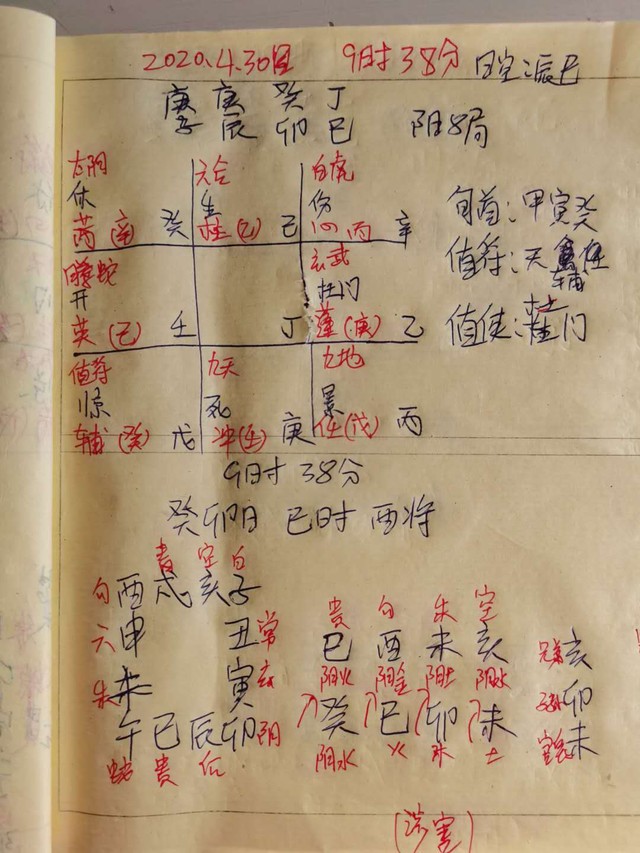 2020.4.30日 9时38分 日空:辰巳
庚 庚 癸 丁
子 辰 卯 巳 阴8局
太阴 六合 白虎
休 生 伤
芮(辛) 癸 柱(乙) 己 心 丙 辛
旬首:甲寅癸
玄武
螣蛇
值符:天 辅
开 杜门
英(己) 壬 丁 蓬(庚) 乙
值使: 门
值符 九天 九地
惊 死 景
辅(癸) 戊 冲(壬) 庚 任(戊) 丙
9时38分
癸卯日 巳时 酉将
贵 空 白
勾 酉 戌 亥 子
贵 勾 朱 空
六 申 丑 常
巳 酉 未 亥 兄 亥
朱 未 寅 玄
阴火 阴金 阴土 阴水
癸 巳 卯 未 卯
午 巳 辰 卯 阴
阴水 火 木 土 未
蛇 贵 后
(涉害)